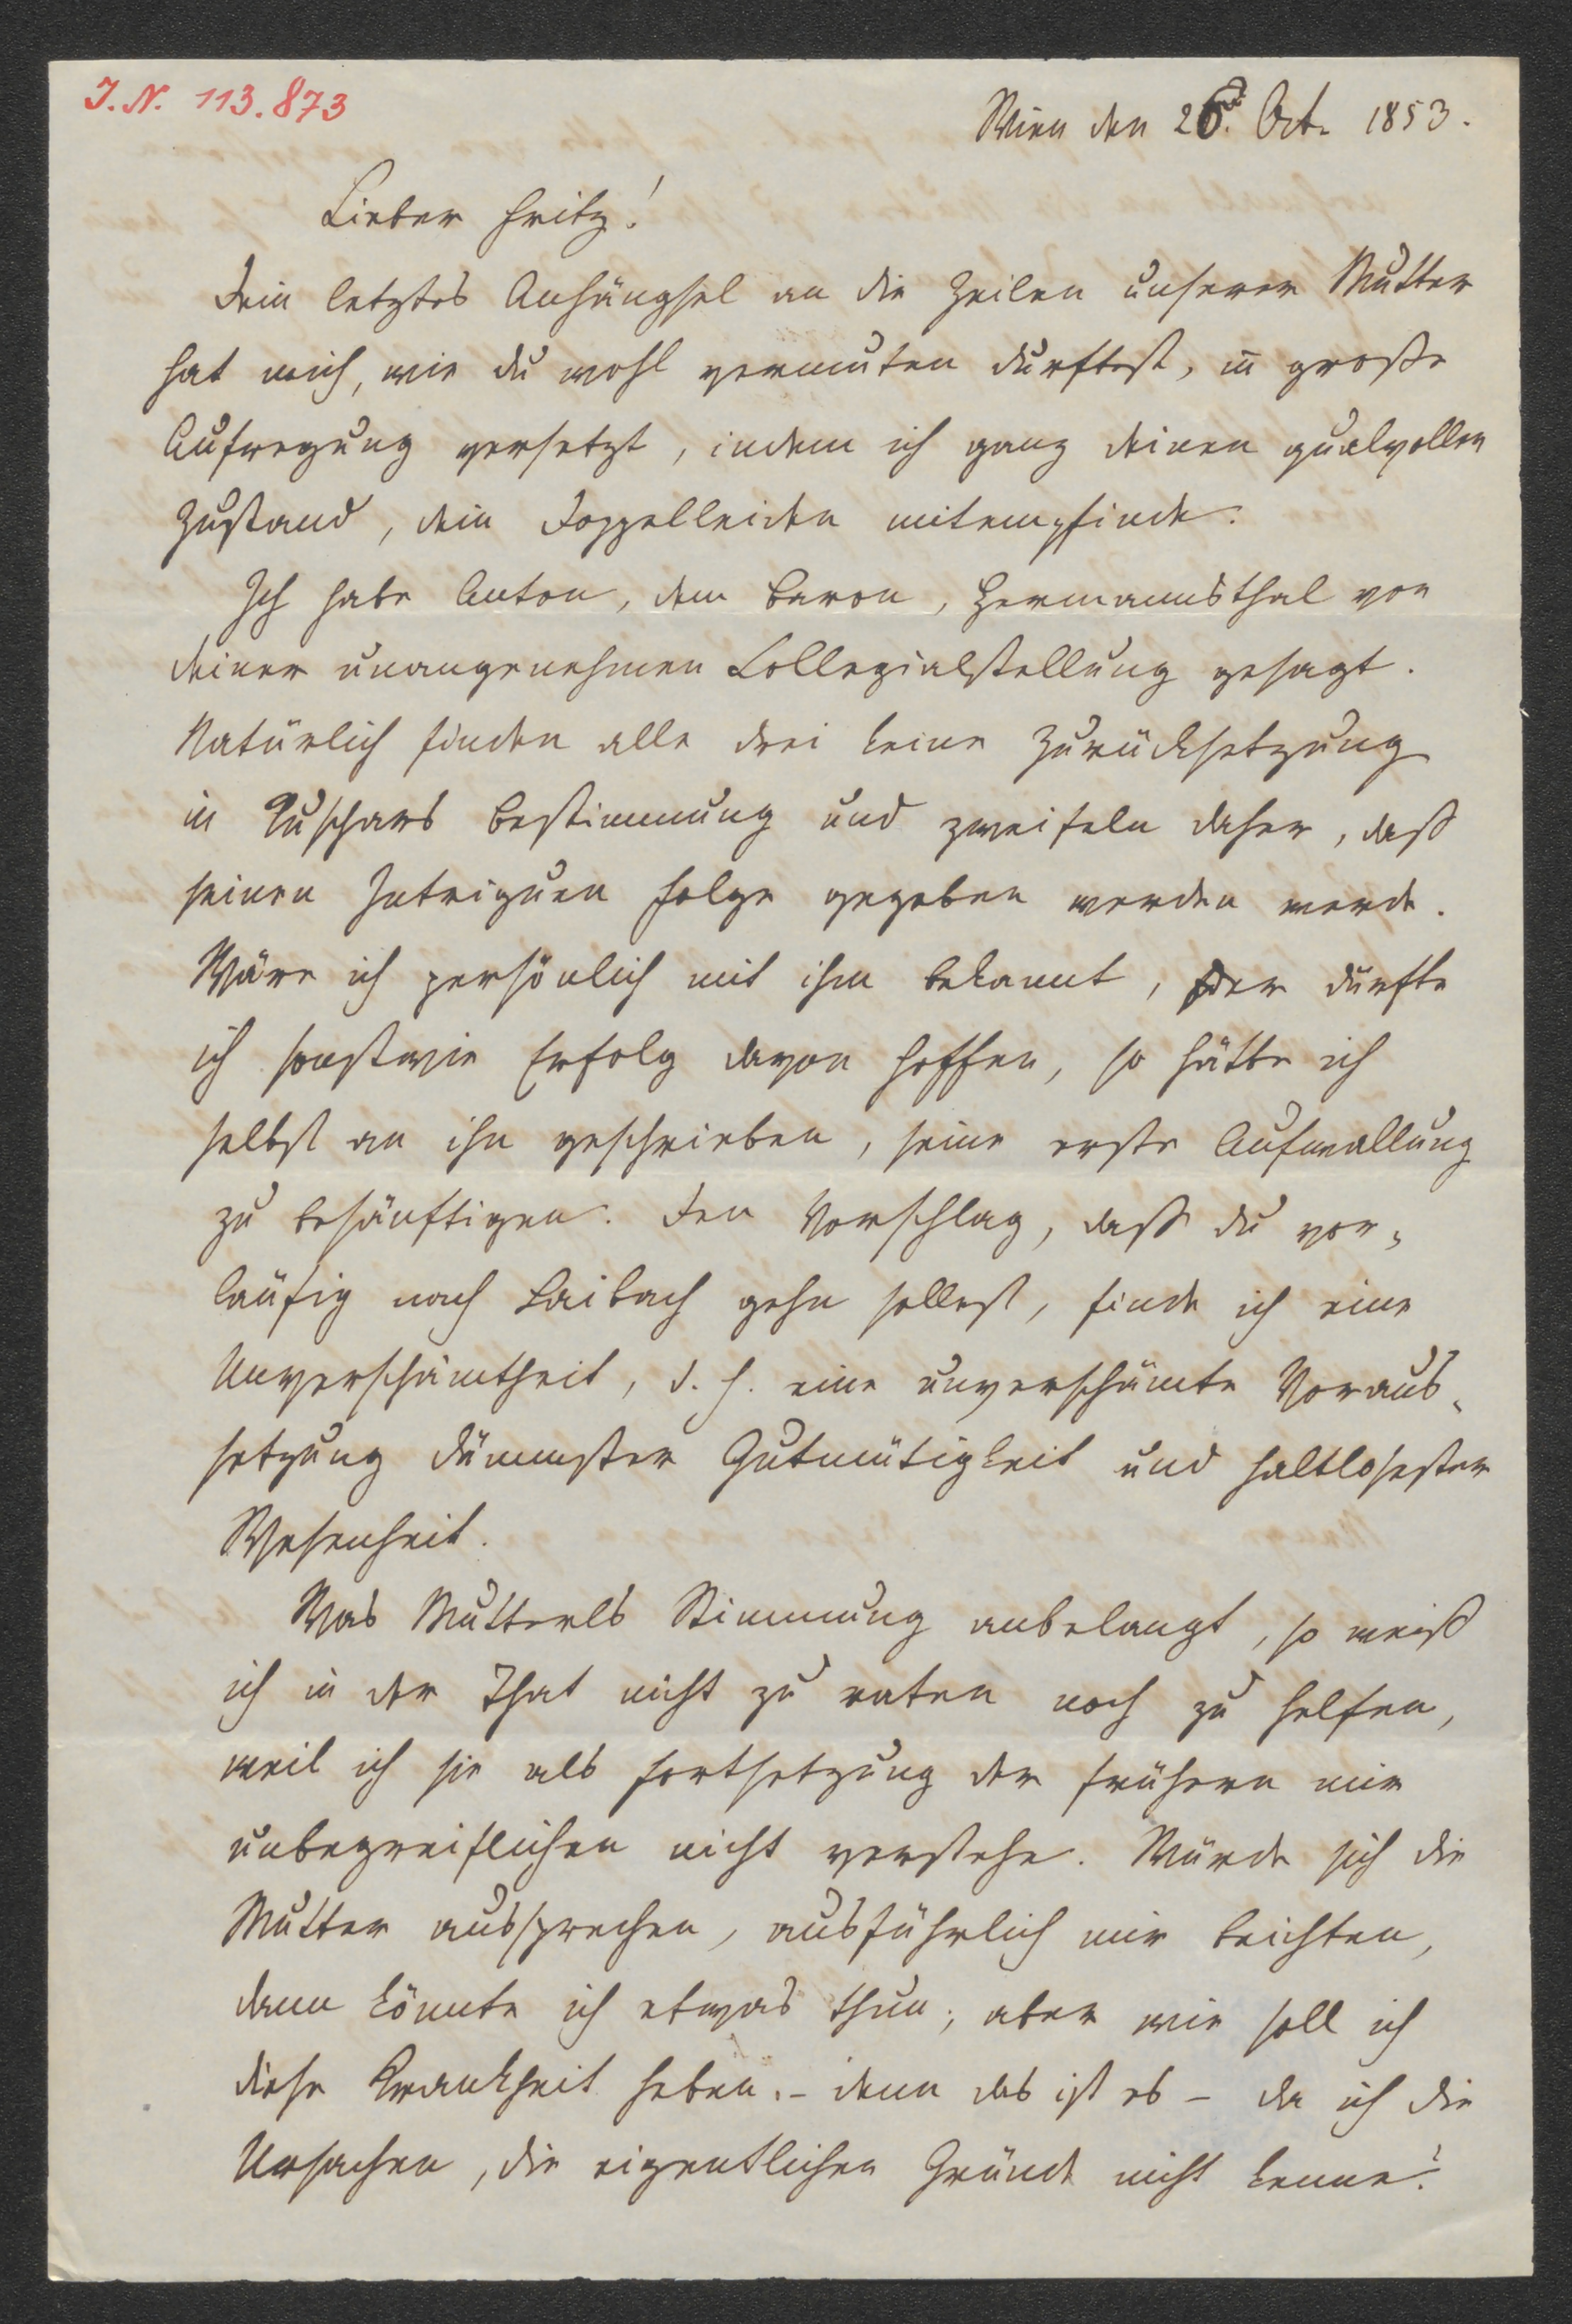 J. N. 113.873
Wien den 26. Oct. 1853.
Lieber Fritz!
Dein letztes Anhängsel an die Zeilen unserer Mutter
hat mich, wie du wohl vermuten durftest, in große
Aufregung versetzt, indem ich ganz deinen qualvollen
Zustand, dein Doppelleiden mitempfinde.
Ich habe Anton, dem Baron, Hermannsthal von
deiner unangenehmen Collegialstellung gesagt.
Natürlich finden alle drei keine Zurücksetzung
in Auschars Bestimmung und zweifeln daher, daß
seinen Intriguen Folge gegeben werden werde.
Wäre ich persönlich mit ihm bekannt, oder durfte
ich sonstwie Erfolg davon hoffen, so hätte ich
selbst an ihn geschrieben, seine erste Aufwallung
zu besänftigen. Den Vorschlag, daß du vor-
läufig nach Laibach gehn sollest, finde ich eine
Unverschämtheit, d. h. eine unverschämte Voraus-
setzung dümmster Gutmütigkeit und haltlosester
Wesenheit.
Was Mutterls Stimmung anbelangt, so weiß
ich in der That nicht zu raten noch zu helfen,
weil ich sie als Fortsetzung der frühern mir
unbegreiflichen nicht verstehe. Würde sich die
Mutter aussprechen, ausführlich mir beichten,
dann könnte ich etwas thun; aber wie soll ich
diese Krankheit heben. – denn das ist es – da ich die
Ursachen, die eigentlichen Gründe nicht kenne?